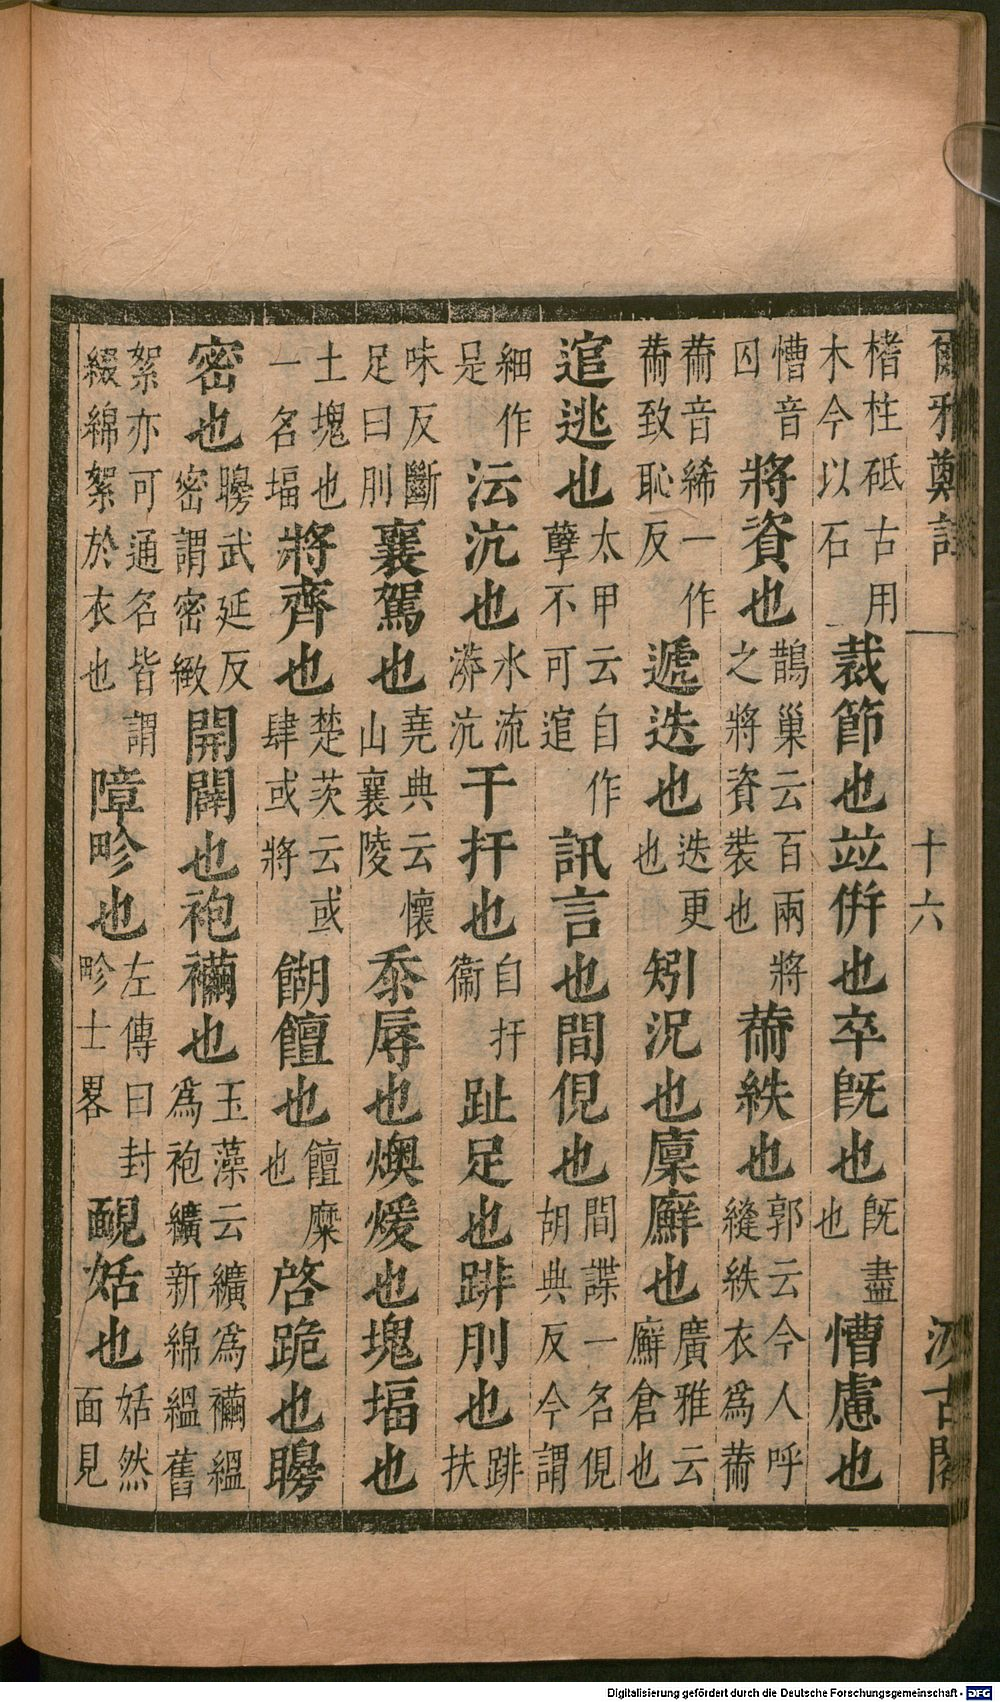 爾雅鄭註 十六 汲古閣
榰柱砥古用木今以石裁節也竝併也卒既也既盡也慒慮也
慒音囚將資也鵲巢云百兩將之將資裝也黹紩也郭云今人呼縫紩衣為黹
黹音絺一作黹致恥反遞迭也迭更也矧況也廩廯也廣雅云廯倉也
逭逃也太甲云自作孽不可逭訊言也間俔也間諜一名俔胡典反今謂
細作是沄沆也水流漭沆干扞也自扞衞趾足也䠊刖也䠊扶
味反斷足曰刖襄駕也堯典云懷山襄陵忝辱也燠煖也塊堛也
土塊也一名堛將齊也楚茨云或肆或將餬饘也饘糜也啓跪也矏
密也矏武延反密謂密緻開闢也袍襺也玉藻云纊爲襺縕爲袍纊新綿縕舊
絮亦可通名皆謂綴綿絮於衣也障畛也左傳曰封畛士畧靦姡也姡然面見
Digitalisierung gefördert durch die Deutsche Forschungsgemeinschaft - DFG